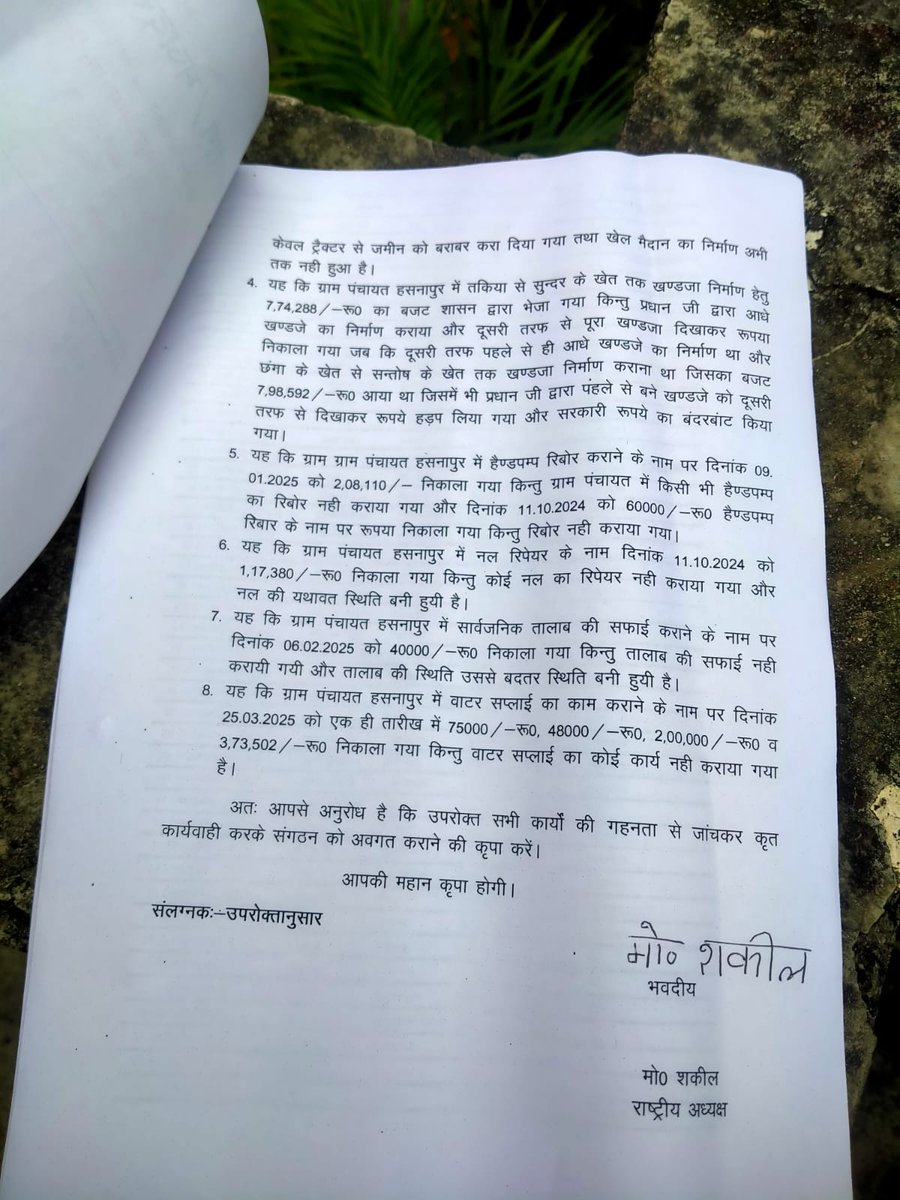 केवल ट्रैक्टर से जमीन को बराबर करा दिया गया तथा खेल मैदान का निर्माण अभी
तक नही हुआ है।
4. यह कि ग्राम पंचायत हसनापुर में तकिया से सुन्दर के खेत तक खण्डजा निर्माण हेतु
7,74,288/–रू0 का बजट शासन द्वारा भेजा गया किन्तु प्रधान जी द्वारा आधे
खण्डजे का निर्माण कराया और दूसरी तरफ से पूरा खण्डजा दिखाकर रूपया
निकाला गया जब कि दूसरी तरफ पहले से ही आधे खण्डजे का निर्माण था और
छंगा के खेत से सन्तोष के खेत तक खण्डजा निर्माण कराना था जिसका बजट
7,98,592/–रू0 आया था जिसमें भी प्रधान जी द्वारा पंहले से बने खण्डजे को दूसरी
तरफ से दिखाकर रूपये हड़प लिया गया और सरकारी रूपये का बंदरबांट किया
गया।
5. यह कि ग्राम ग्राम पंचायत हसनापुर में हैण्डपम्प रिबोर कराने के नाम पर दिनांक 09.
01.2025 को 2,08,110/– निकाला गया किन्तु ग्राम पंचायत में किसी भी हैण्डपम्प
का रिबोर नही कराया गया और दिनांक 11.10.2024 को 60000/–रू0 हैण्डपम्प
रिबार के नाम पर रूपया निकाला गया किन्तु रिबोर नही कराया गया।
6. यह कि ग्राम पंचायत हसनापुर में नल रिपेयर के नाम दिनांक 11.10.2024 को
1,17,380/–रू0 निकाला गया किन्तु कोई नल का रिपेयर नही कराया गया और
नल की यथावत स्थिति बनी हुयी है।
7. यह कि ग्राम पंचायत हसनापुर में सार्वजनिक तालाब की सफाई कराने के नाम पर
दिनांक 06.02.2025 को 40000/–रू0 निकाला गया किन्तु तालाब की सफाई नही
करायी गयी और तालाब की स्थिति उससे बदतर स्थिति बनी हुयी है।
8. यह कि ग्राम पंचायत हसनापुर में वाटर सप्लाई का काम कराने के नाम पर दिनांक
25.03.2025 को एक ही तारीख में 75000/–रू0, 48000/–रू0, 2,00,000/–रू0 व
3,73,502/–रू0 निकाला गया किन्तु वाटर सप्लाई का कोई कार्य नही कराया गया
है।
अतः आपसे अनुरोध है कि उपरोक्त सभी कार्यों की गहनता से जांचकर कृत
कार्यवाही करके संगठन को अवगत कराने की कृपा करें।
आपकी महान कृपा होगी।
संलग्नकः–उपरोक्तानुसार
मो० शकील
भवदीय
मो0 शकील
राष्ट्रीय अध्यक्ष